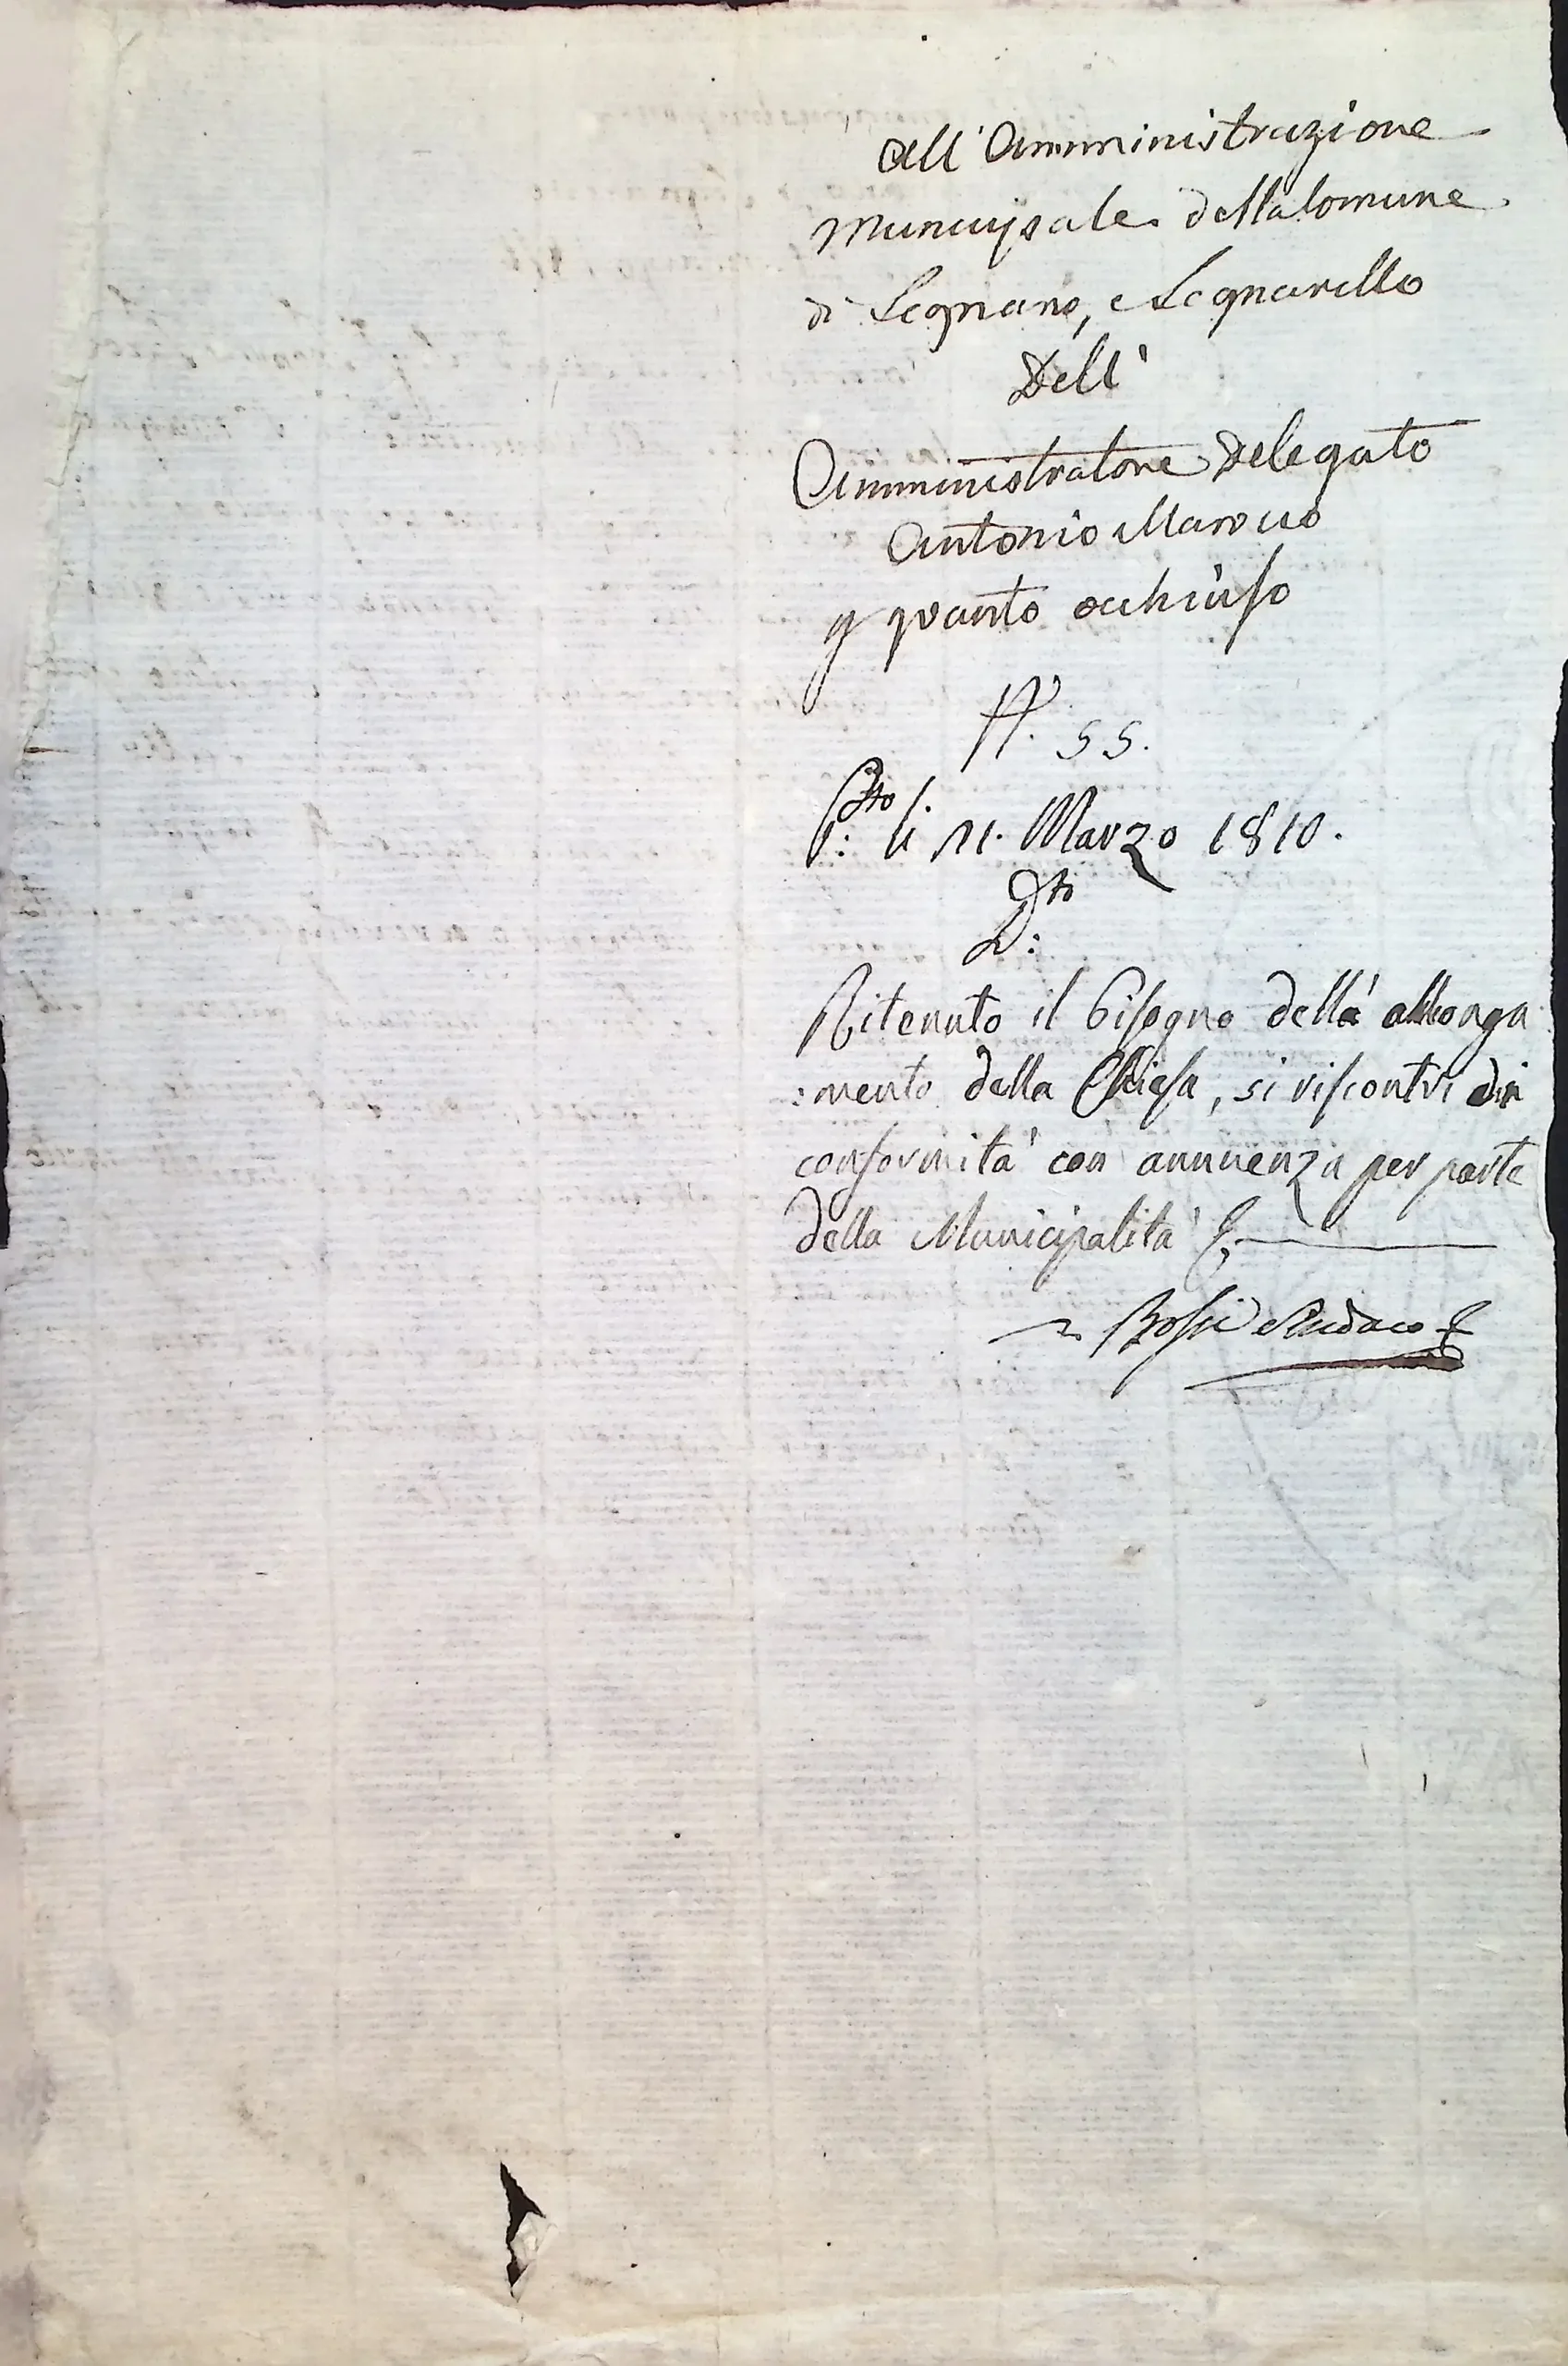 All'Amministrazione
Municipale della Comune
di Legnano, e Legnarello
Dell'
Amministratore Delegato
Antonio Marocco
quanto occhiuso
N. 55.
P:to li 11. Marzo 1810.
D:to
Ritenuto il bisogno della' allonga
:mento della Chiesa, si riscontri di
conformità con annuenza per parte
della Municipalità
Bossi Sindaco